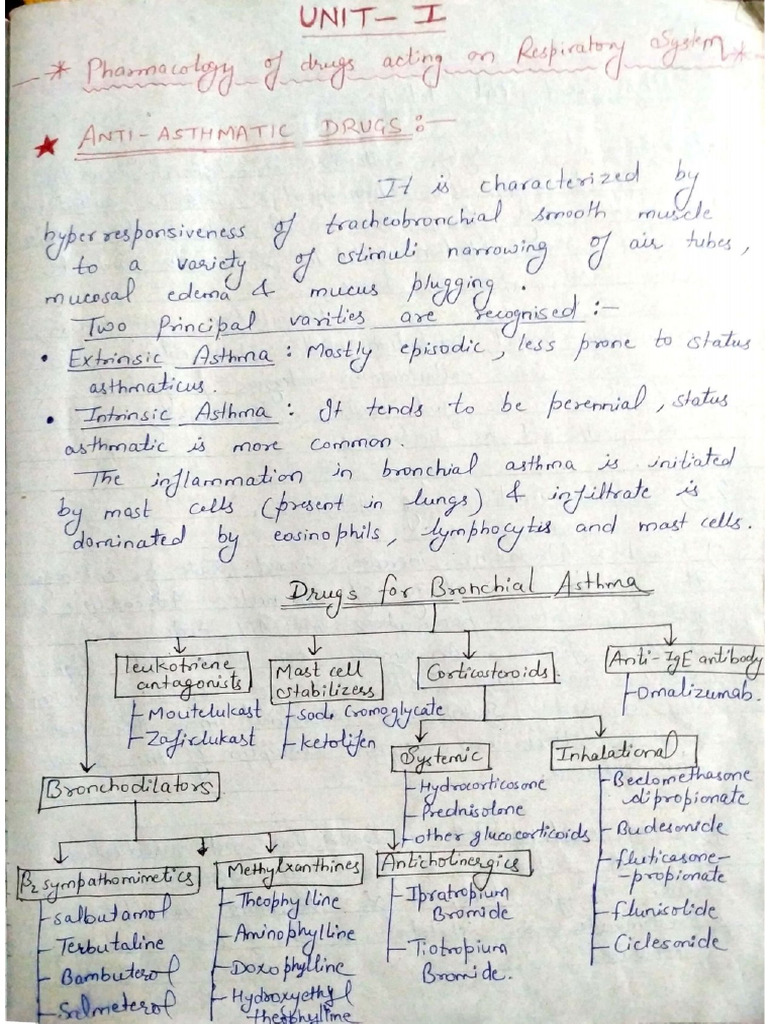 UNIT-I
* Pharmacology of drugs acting on Respiratory System *
★ ANTI-ASTHMATIC DRUGS:-
It is characterized by
hyperresponsiveness of tracheobronchial smooth muscle
to a variety of stimuli narrowing of air tubes,
mucosal edema & mucus plugging.
Two Principal varities are recognised:-
• Extrinsic Asthma: Mostly episodic, less prone to status
asthmaticus.
• Intrinsic Asthma: It tends to be perennial, status
asthmatic is more common.
The inflammation in bronchial asthma is initiated
by mast cells (present in lungs) & infiltrate is
dominated by eosinophils, lymphocytis and mast cells.
Drugs for Bronchial Asthma
Leukotriene
antagonists
Moutelukast
Zafirlukast
Mast cell
stabilizers
sod. Cromoglycate
Ketolifen
Corticosteroids
Anti-IgE antibody
Omalizumab.
Systemic
Hydrocorticosone
Prednisolone
other glucocorticoids
Inhalational
Beclomethasone
dipropionate
Budesonide
fluticasone-
-propionate
flunisolide
Ciclesonide
Bronchodilators
β2 sympathomimetics
salbutamol
Terbutaline
Bambuterol
Salmeterol
Methylxanthines
Theophylline
Aminophylline
Doxophylline
Hydroxyethyl
theophylline
Anticholinergics
Ipratropium
Bromide
Tiotropium
Bromide.